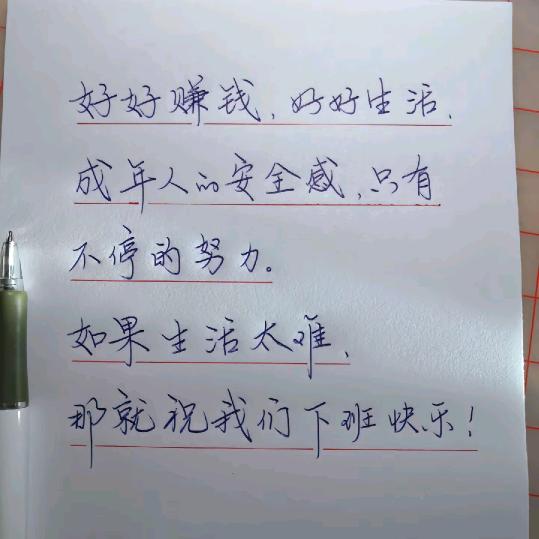 好好赚钱、好好生活、
成年人的安全感，只有
不停的努力。
如果生活太难、
那就祝我们下班快乐！